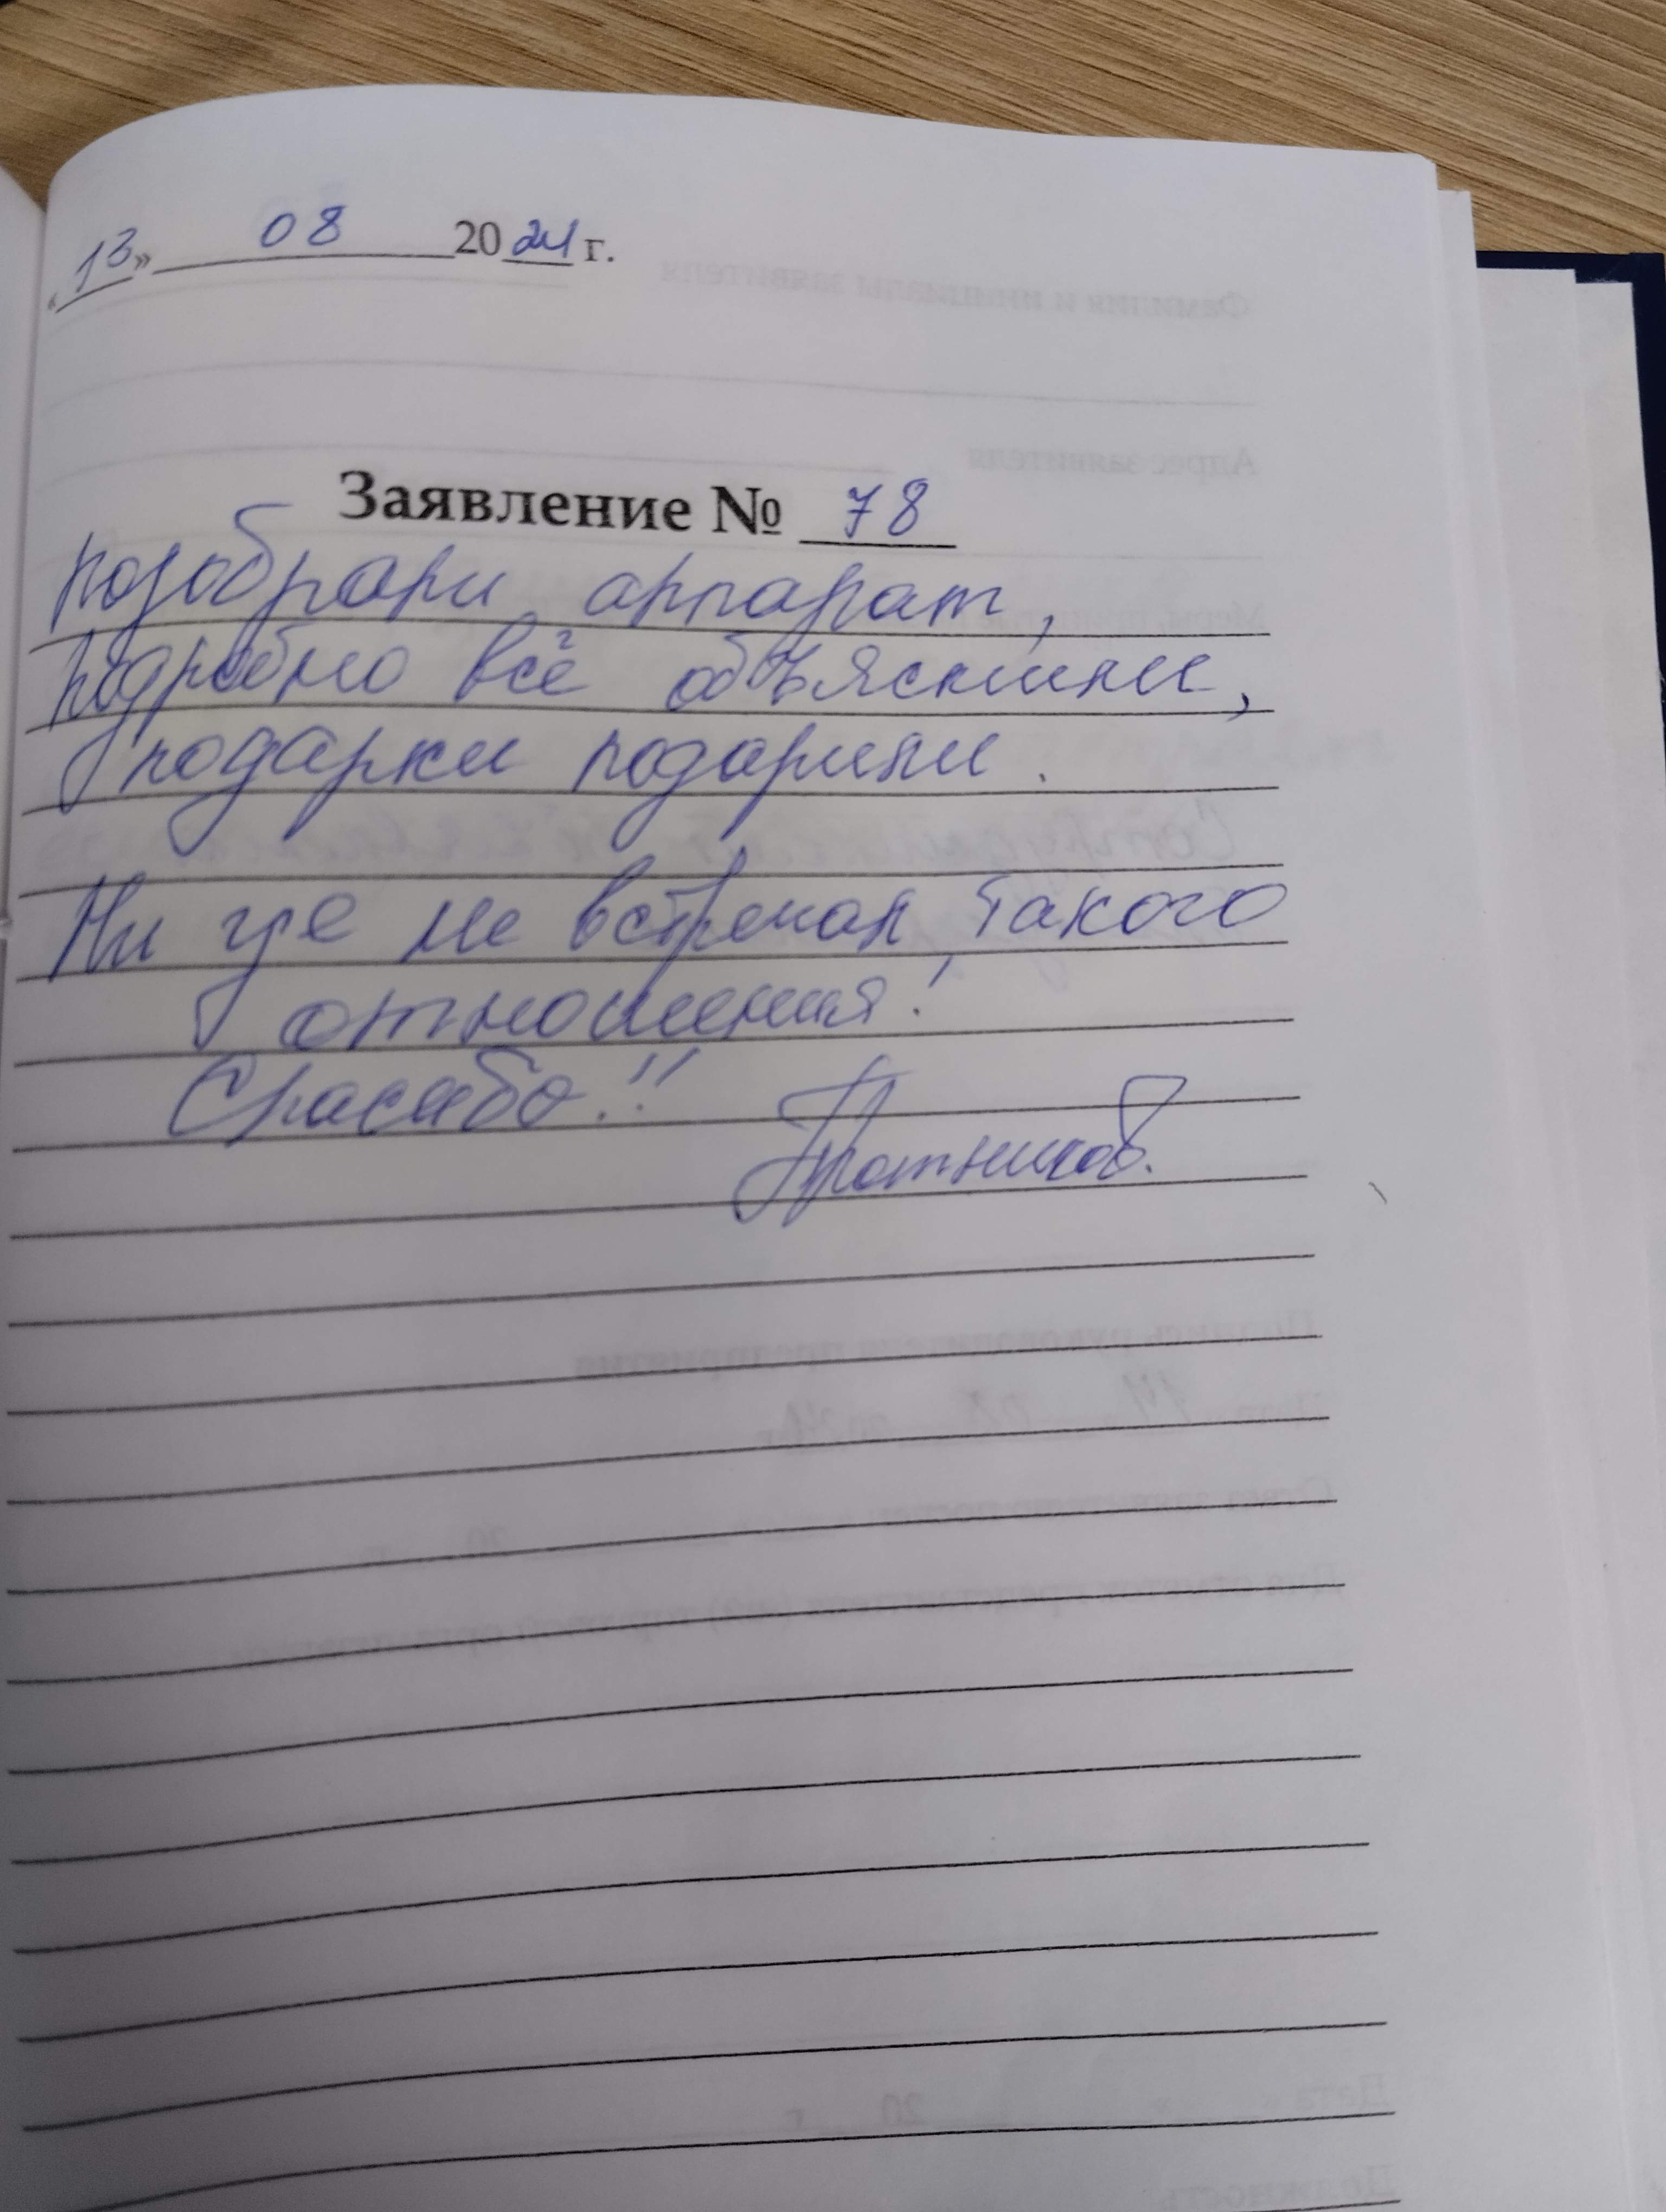 «13» 08 2024 г.
Заявление № 78
подобрали аппарат,
подробно всё объяснили,
подарки подарили.
Ни где не встречал такого
отношения!
Спасибо!!
Плотников.